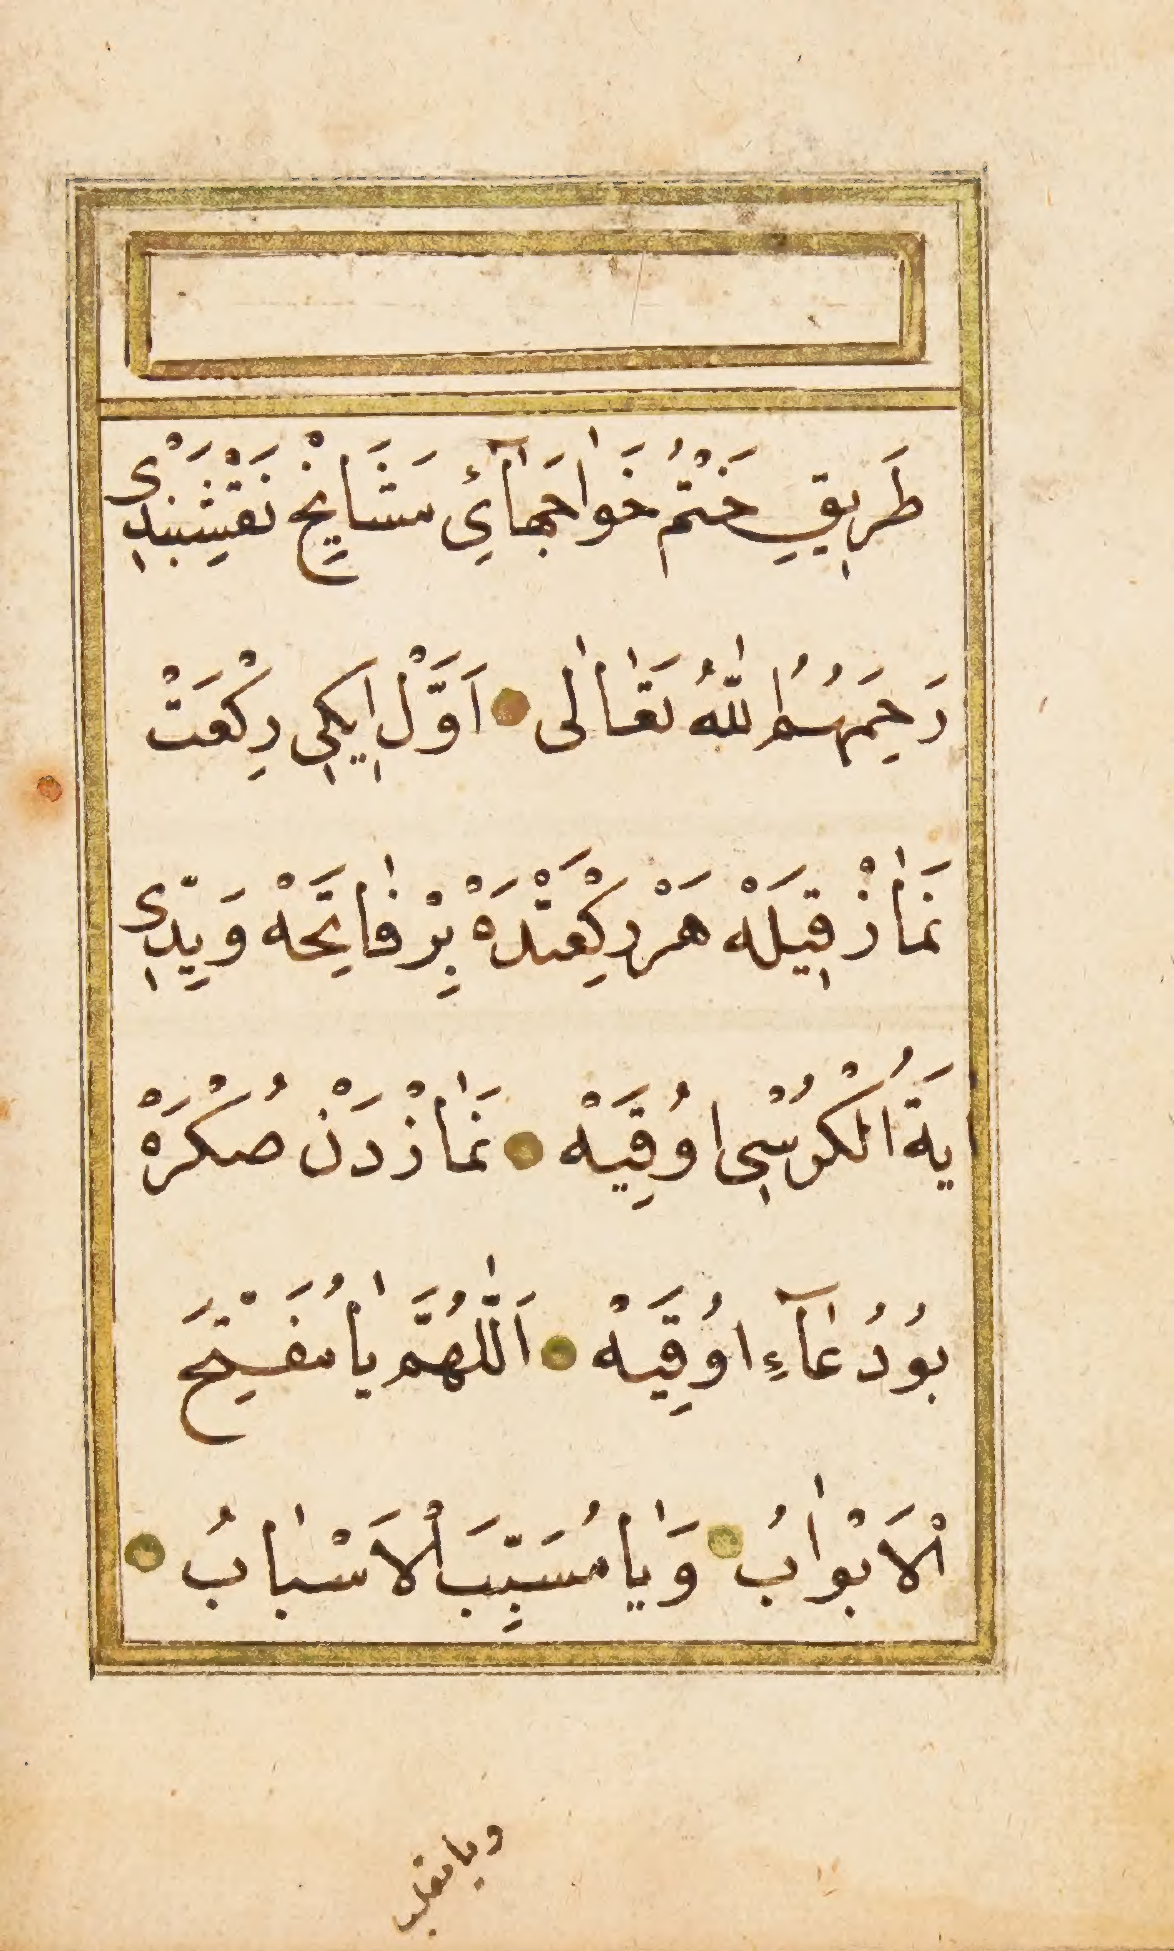 طَرِيقِ خَتْمُ خَواجَهٰآئِ مَشَايِخْ نَقْشِبَنْدِى
رَحِمَهُمُ اللّٰهُ تَعَالٰى ● اَوَّلْ اِيكِى رِكْعَتْ
نَمَازْ قِيلَهْ هَرْ رِكْعَتْدَهْ بِرْ فَاتِحَهْ وَيِدِّى
اٰيَةُ الْكُرْسِى اوُقِيَهْ ● نَمَازْدَنْ صُكْرَهْ
بُو دُعَآءِ اوُقِيَهْ ● اَللّٰهُمَّ يَا مُفَتِّحَ
الْاَبْوٰابُ ● وَيٰا مُسَبِّبَ الْاَسْبٰابُ ●
ويا مقلب